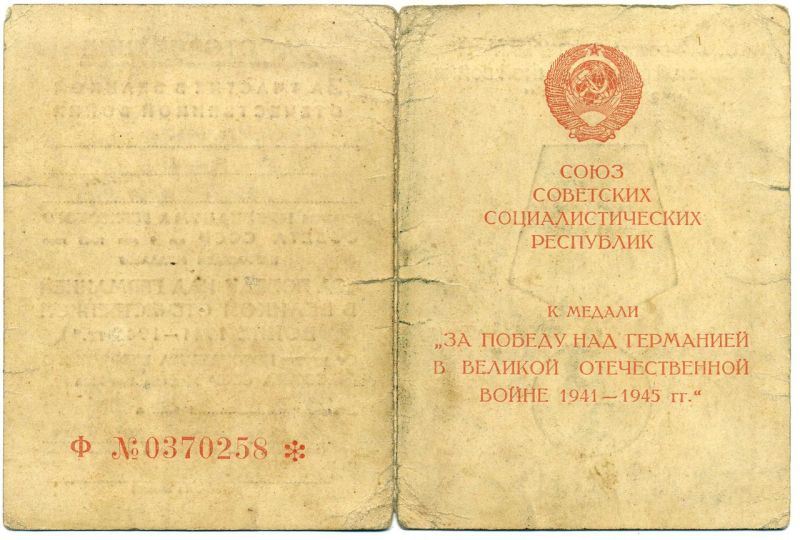 Ф №0370258 *
СОЮЗ
СОВЕТСКИХ
СОЦИАЛИСТИЧЕСКИХ
РЕСПУБЛИК
К МЕДАЛИ
„ЗА ПОБЕДУ НАД ГЕРМАНИЕЙ
В ВЕЛИКОЙ ОТЕЧЕСТВЕННОЙ
ВОЙНЕ 1941—1945 гг.“